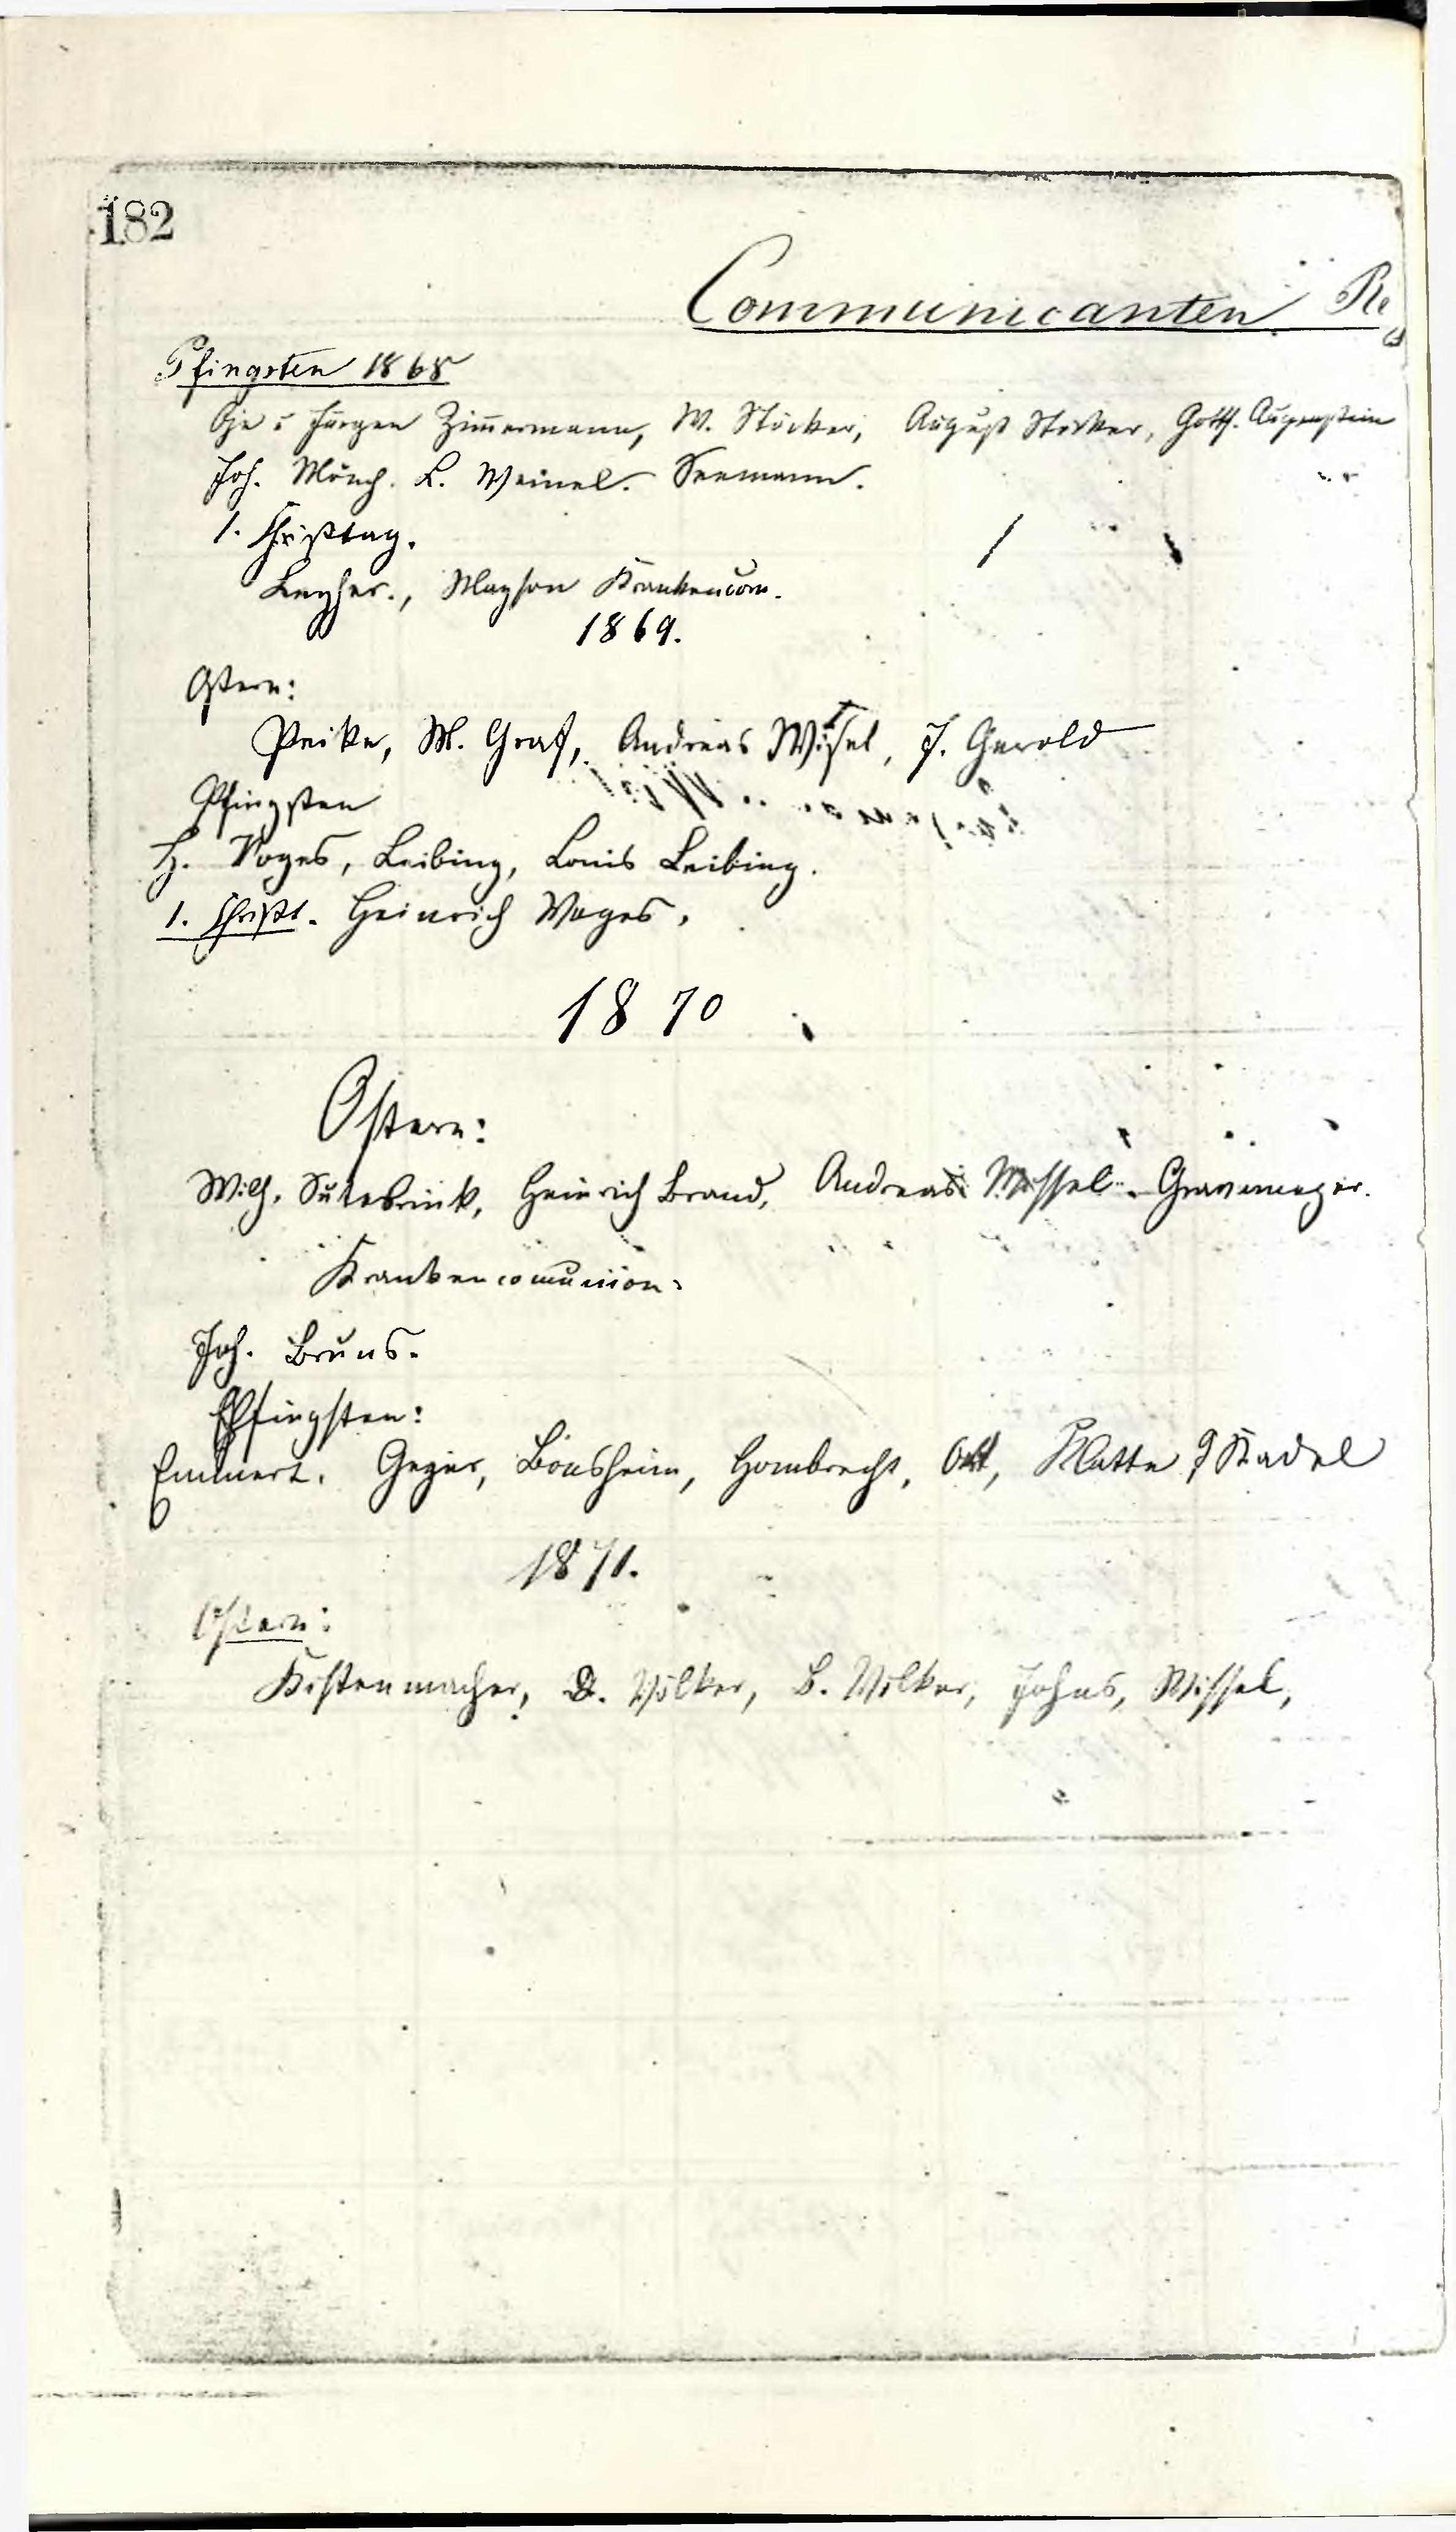 182
Communicanten Reg
Pfingsten 1868
Jürgen Zim̄ermann, W. Stöcker, August Stöcker, Gottf. Augenstein
Joh. Mönch. L. Weinel. Seemann.
1. Christtag.
Krankencom.
1869.
Ostern:
Peike, M. Graf, Andreas Wißel, J. Gerold
Pfingsten
H. Voges, Leibing, Louis Leibing.
1. Christt. Heinrich Voges.
1870
Ostern:
Wilh. Sutebrink, Heinrich Brand, Andreas Wissel. Gravemeyer.
Krankencom̄union:
Joh. Bruns.
Pfingsten:
Emmert. Geyer, Bönsheim, Hombrecht, Ott, Klatte Stadel
1871.
Ostern:
Kistenmacher, D. Völker, B. Völker, Johns, Wissel,